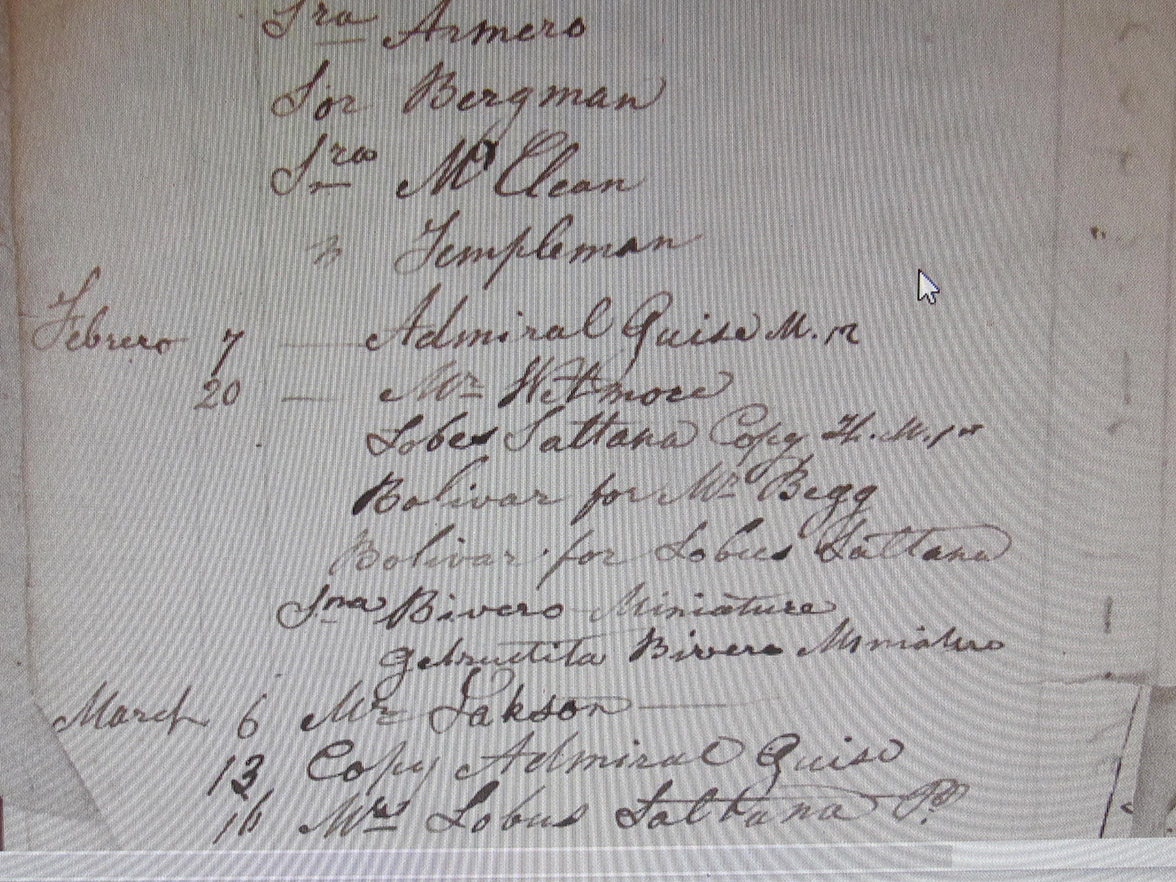 Sra Armero
Sor Bergman
Sra McClean
" Templeman
Febrero 7 — Admiral Guise M.r
20 — Mr Wetmore
Lobes Sattana Copy H. M.r
Bolivar for Mr Begg
Bolivar for Lobus Sattana
Sna Bivero Miniature
Getructita Bivero Miniature
March 6 Mr Jakson —
13 Copy Admiral Guise
16 Mrs Lobus Sattana Pd